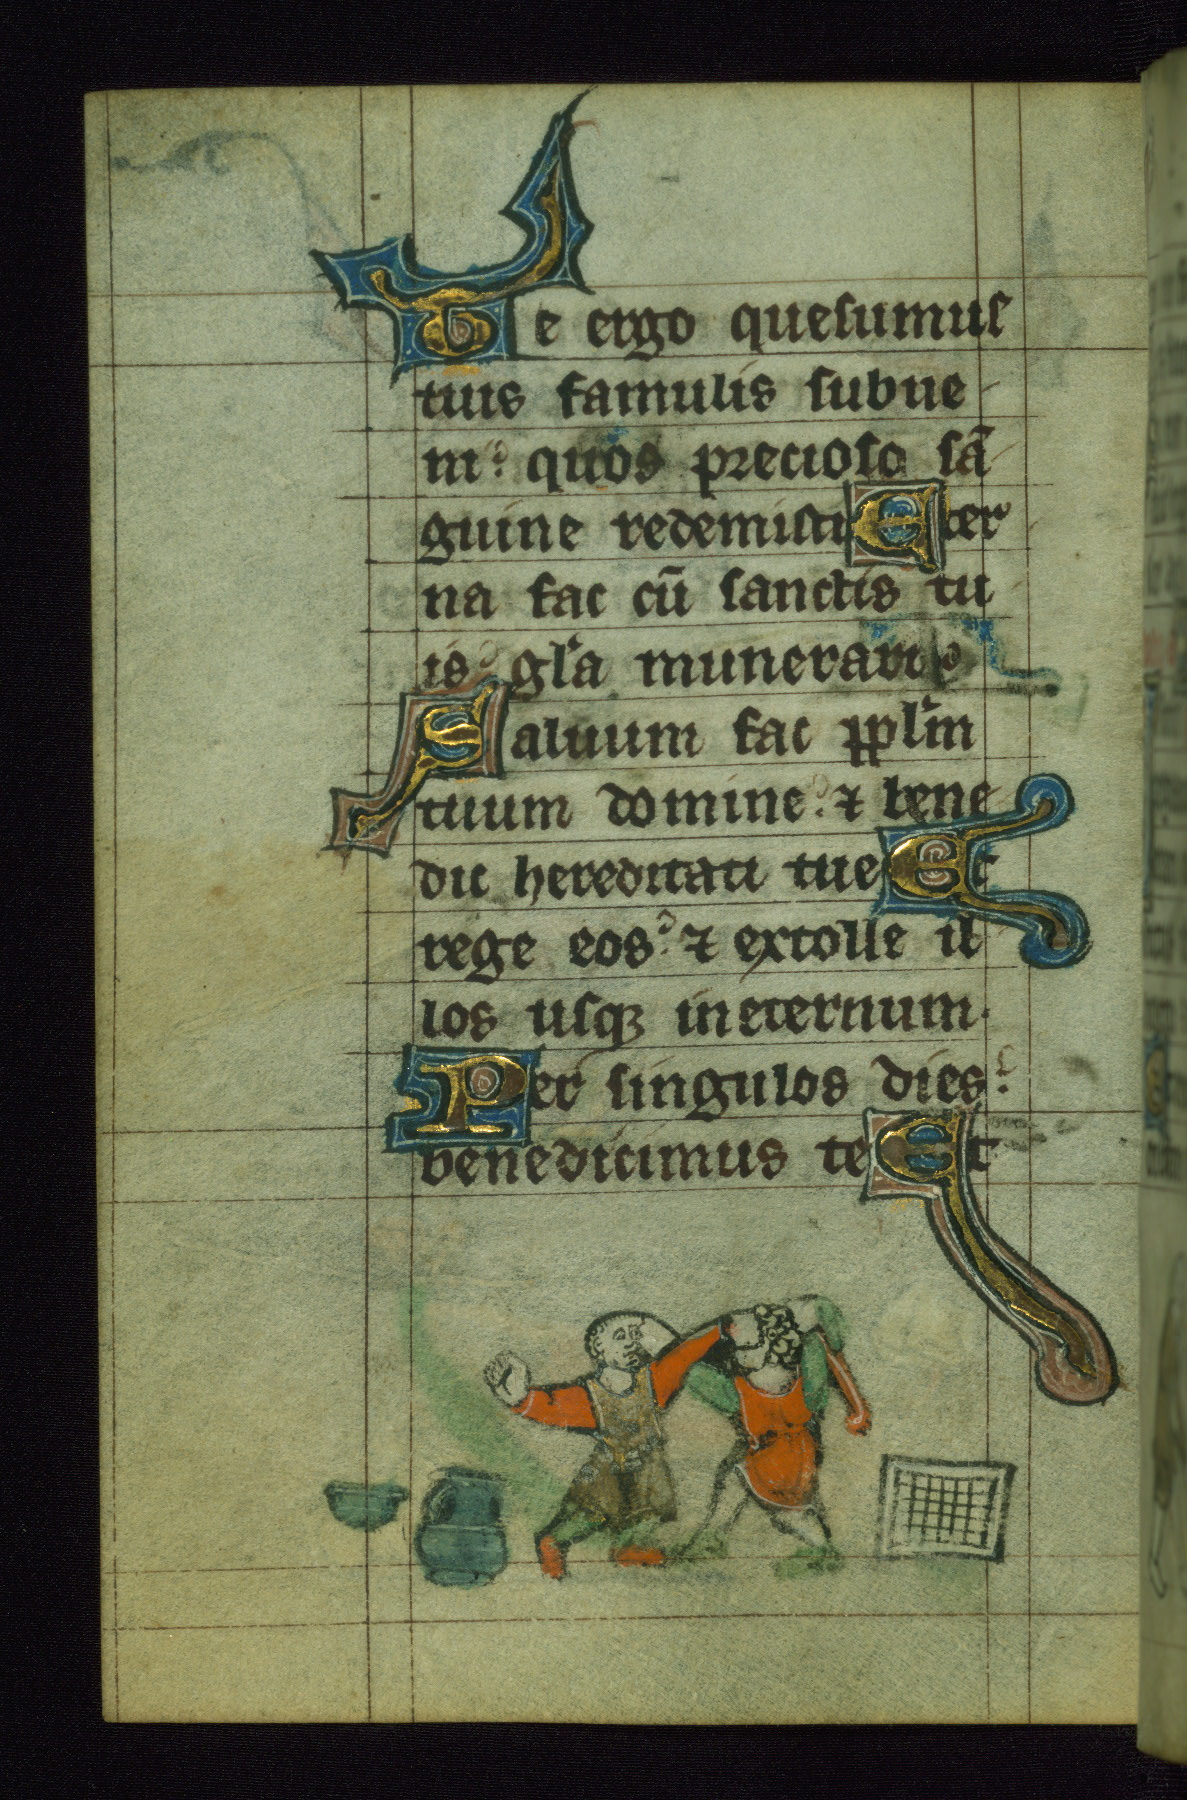 Te ergo quesumus
tuis famulis subue
ni: quos precioso sā
guine redemisti Eter
na fac cū sanctis tu
is gl'a munerari
Saluum fac ppl'm
tuum domine: ⁊ bene
dic hereditati tue Et
rege eos: ⁊ extolle il
los usqꝫ ineternum.
Per singulos dies:
benedicimus te Et